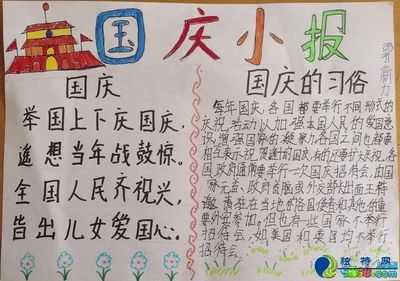 国庆小报
国庆
举国上下庆国庆,
遥想当年战鼓惊。
全国人民齐祝兴,
皆出儿女爱国心。
国庆的习俗
每年国庆,各国都要举行不同形式的
庆祝活动,以加强本国人民的爱国意
识,增强国家的凝聚力。各国之间也都要
相互表示祝贺。逢五逢十的国庆,有的还要扩大庆祝
各国政府通常要举行一次国庆招待会,由国
家元首、政府首脑或外交部长出面主持
邀请驻在当地的各国使者和其他的重
要外宾参加。但也有一些国家不举行
招待会,如美国和英国均不举行
招待会。
独特网